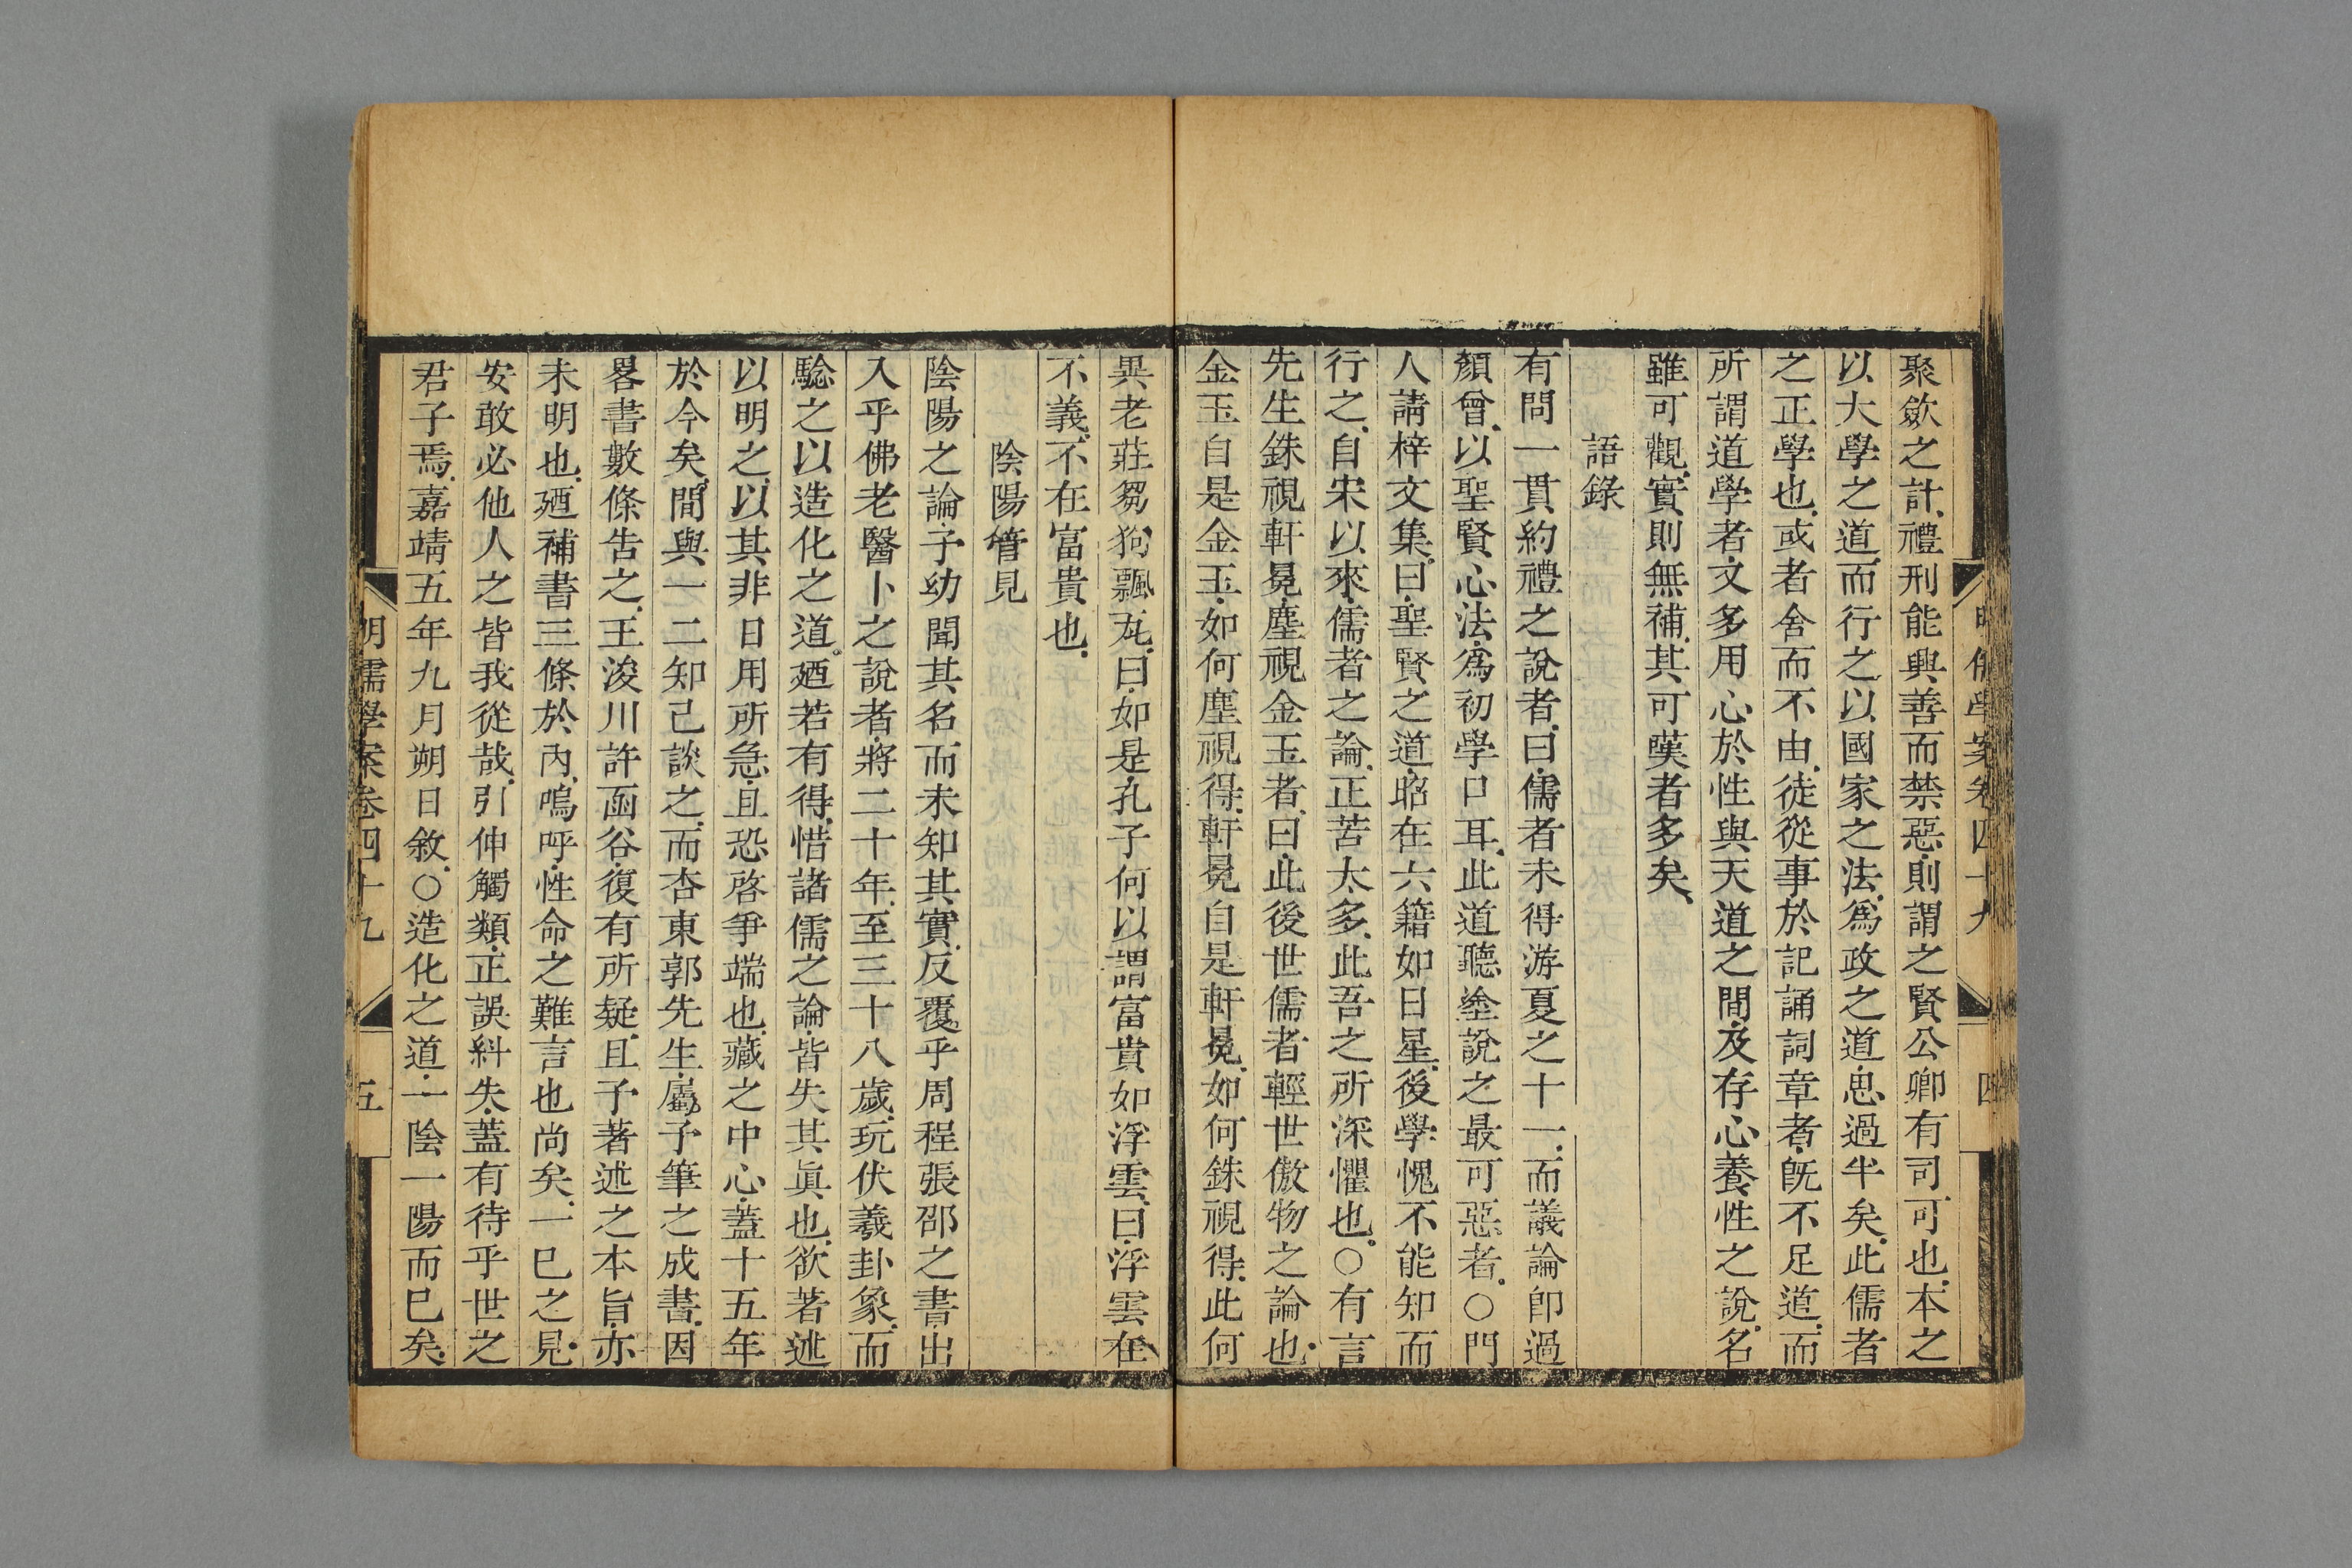 聚歛之計禮刑能興善而禁惡則謂之賢公卿有司可也本之
以大學之道而行之以國家之法爲政之道思過半矣此儒者
之正學也或者舍而不由徒從事於記誦詞章者旣不足道而
所謂道學者文多用心於性與天道之間及存心養性之說名
雖可觀實則無補其可嘆者多矣
語錄
有問一貫約禮之說者曰儒者未得游夏之十一而議論卽過
顏曾以聖賢心法爲初學口耳此道聽塗說之最可惡者○門
人請梓文集曰聖賢之道昭在六籍如日星後學愧不能知而
行之自宋以來儒者之論正苦太多此吾之所深懼也○有言
先生銖視軒冕塵視金玉者曰此後世儒者輕世傲物之論也
金玉自是金玉如何塵視得軒冕自是軒冕如何銖視得此何
異老莊芻狗飄瓦曰如是孔子何以謂富貴如浮雲曰浮雲在
不義不在富貴也
陰陽管見
陰陽之論予幼聞其名而未知其實反覆乎周程張邵之書出
入乎佛老醫卜之說者將二十年至三十八歲玩伏羲卦象而
驗之以造化之道廼若有得惜諸儒之論皆失其眞也欲著述
以明之以其非日用所急且恐啓爭端也藏之中心蓋十五年
於今矣間與一二知己談之而杏東郭先生屬予筆之成書因
畧書數條告之王浚川許函谷復有所疑且予著述之本旨亦
未明也廼補書三條於內嗚呼性命之難言也尚矣一巳之見
安敢必他人之皆我從哉引伸觸類正誤糾失蓋有待乎世之
君子焉嘉靖五年九月朔日敘○造化之道一陰一陽而巳矣
明儒學案卷四十九
五